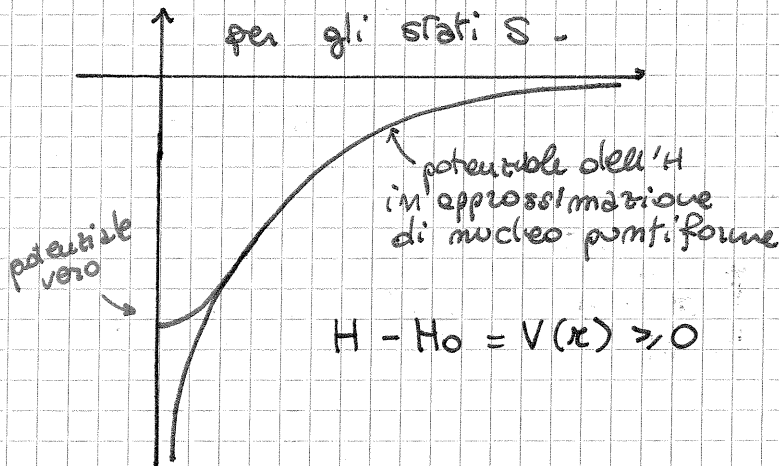 per gli stati S -
potenziale dell'H
in approssimazione
di nucleo puntiforme
potenziale
vero
H - Ho = V(r) ≥ 0